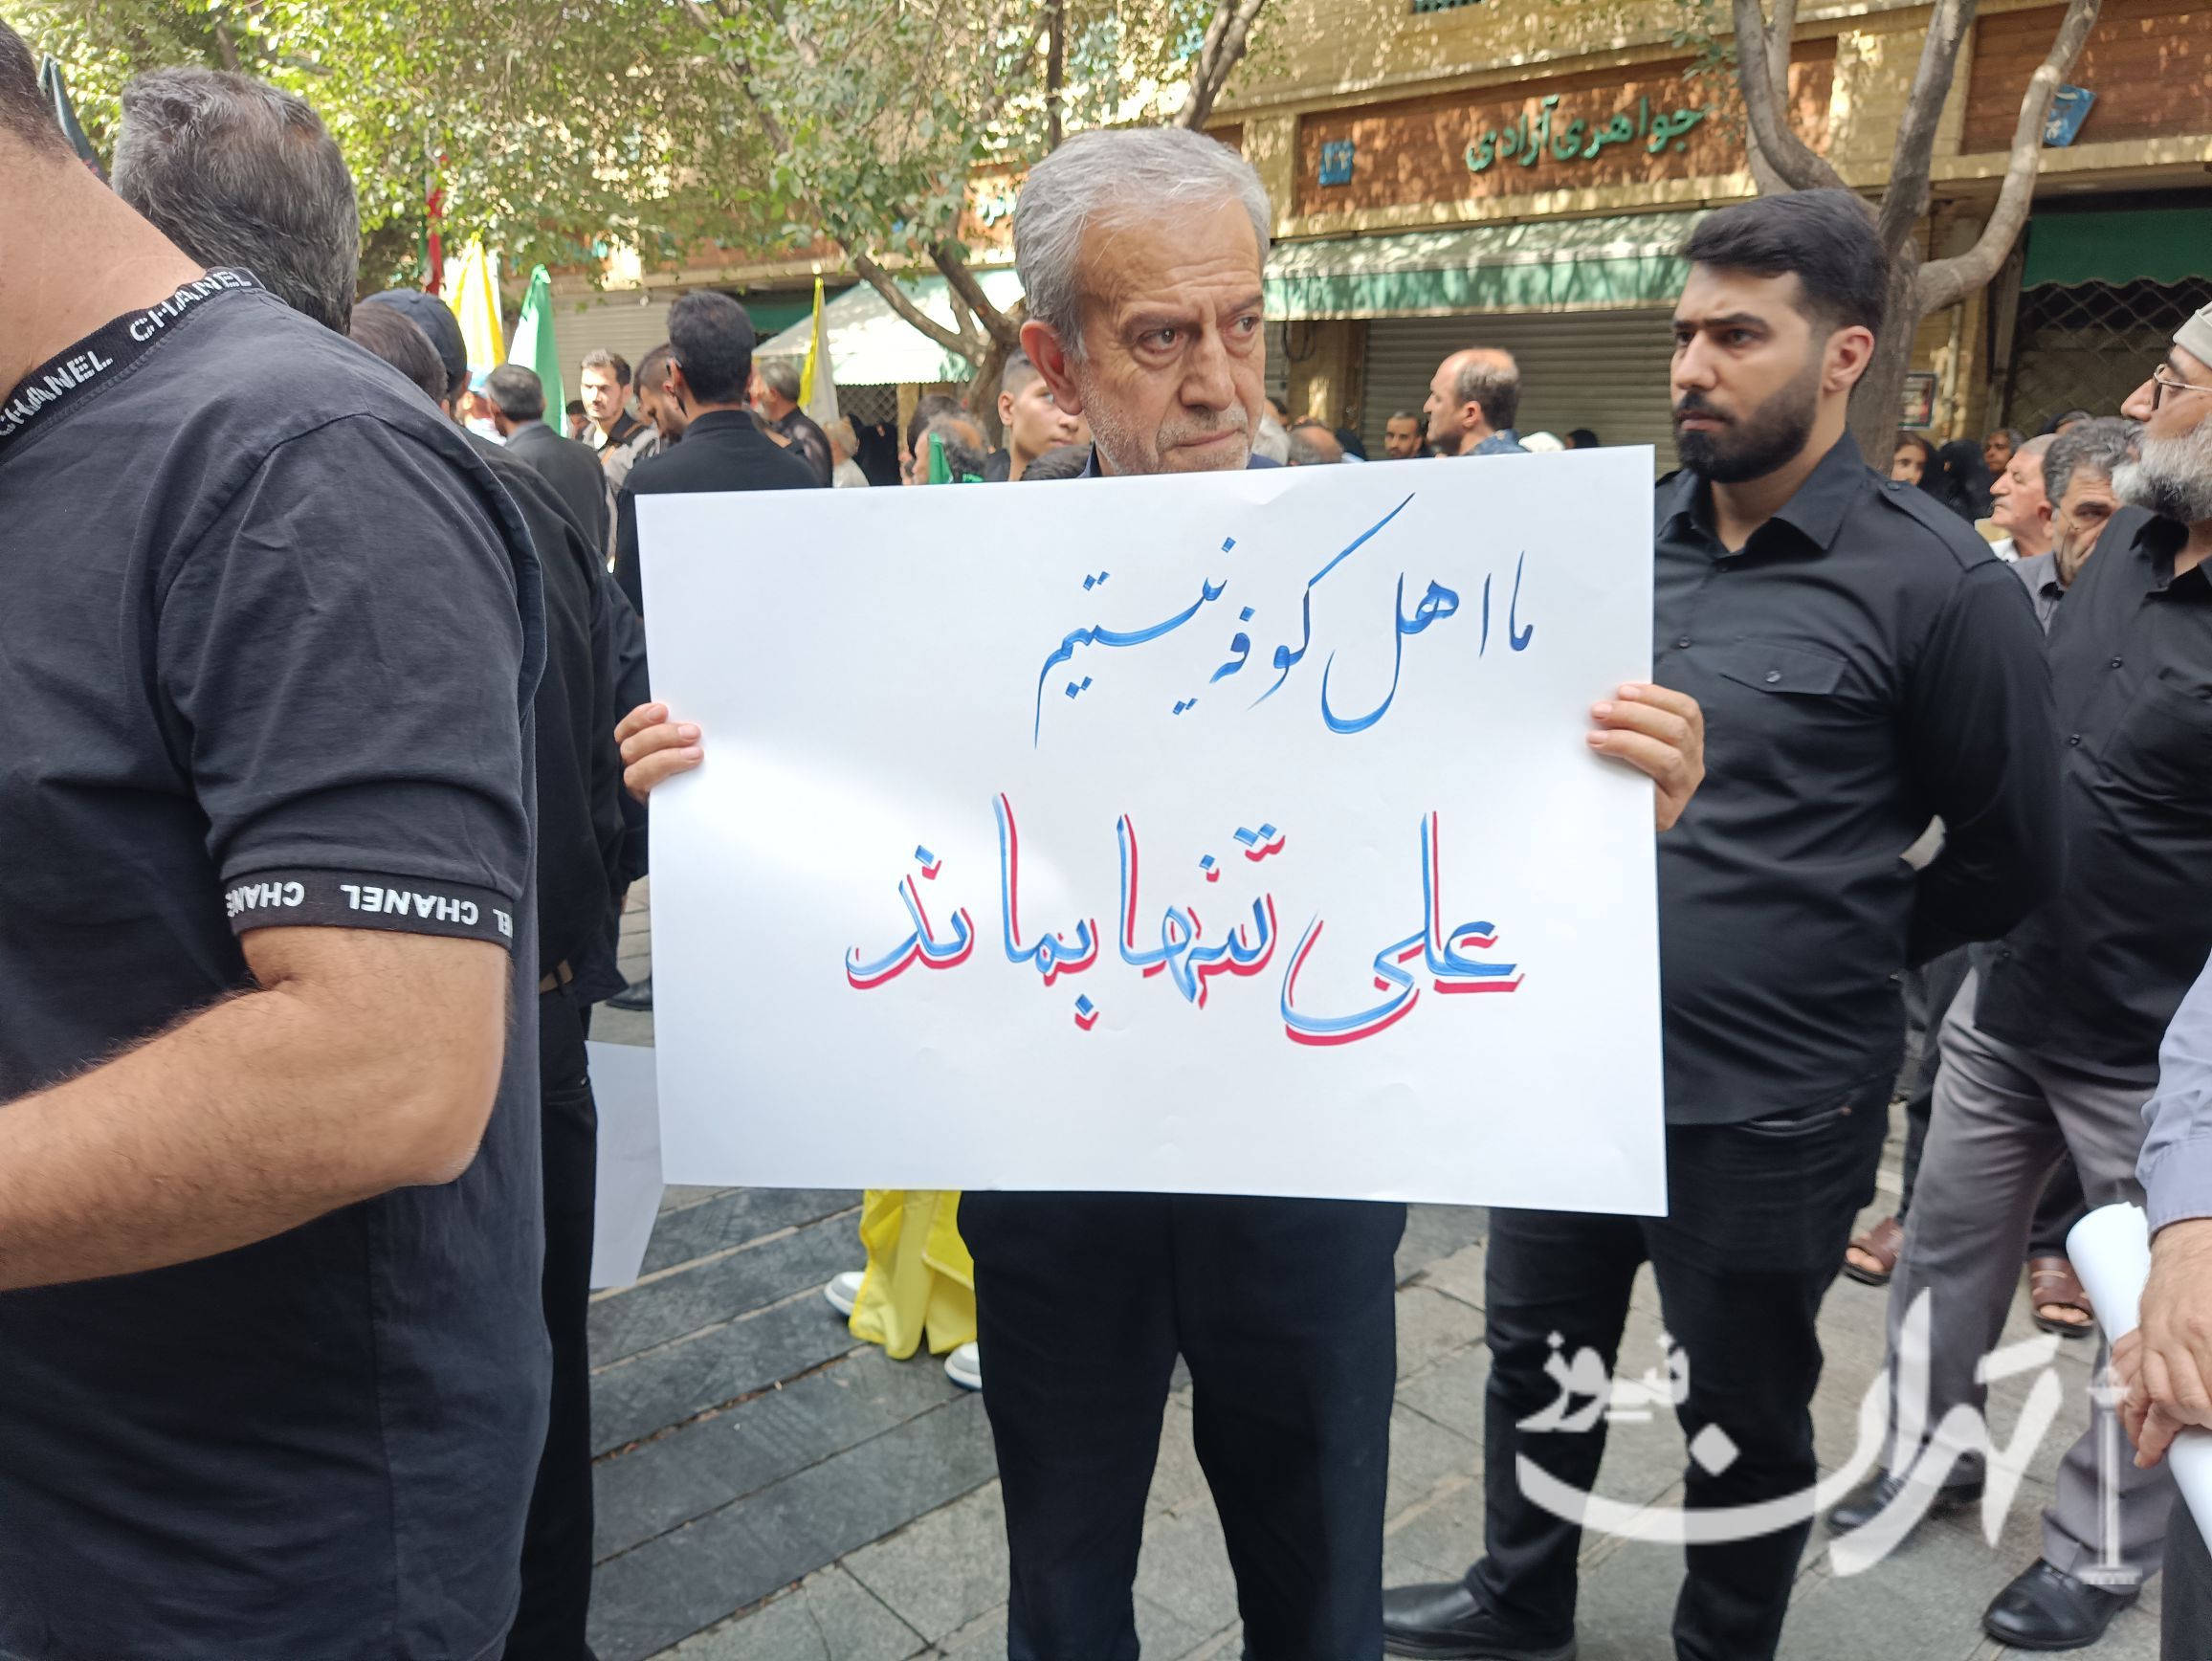 جواهری آزادی
ما اهل کوفه نیستیم
علی تنها بماند
CHANEL CHANEL
CHANEL CHANEL
تهران نیوز